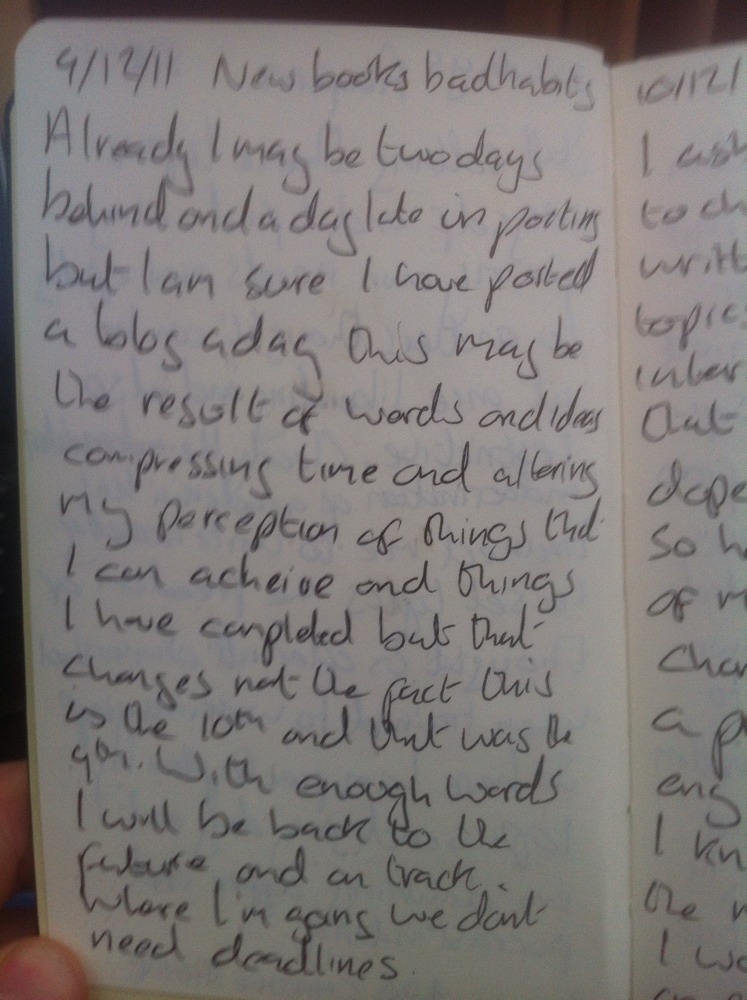 9/12/11 New books bad habits
Already I may be two days
behind and a day late in posting
but I am sure I have posted
a day this may be
the result of words and ideas
compressing time and altering
my perception of things that
I can acheive and things
I have completed but that
changes not the fact this
is the 10th and that was the
9th. With enough words
I will be back to the
future and on track.
Where I'm going we dont
need deadlines.
10/12/
I
to
writ
topic
inter
that
depe
so h
of m
chan
a p
eng
I kn
the
I wo